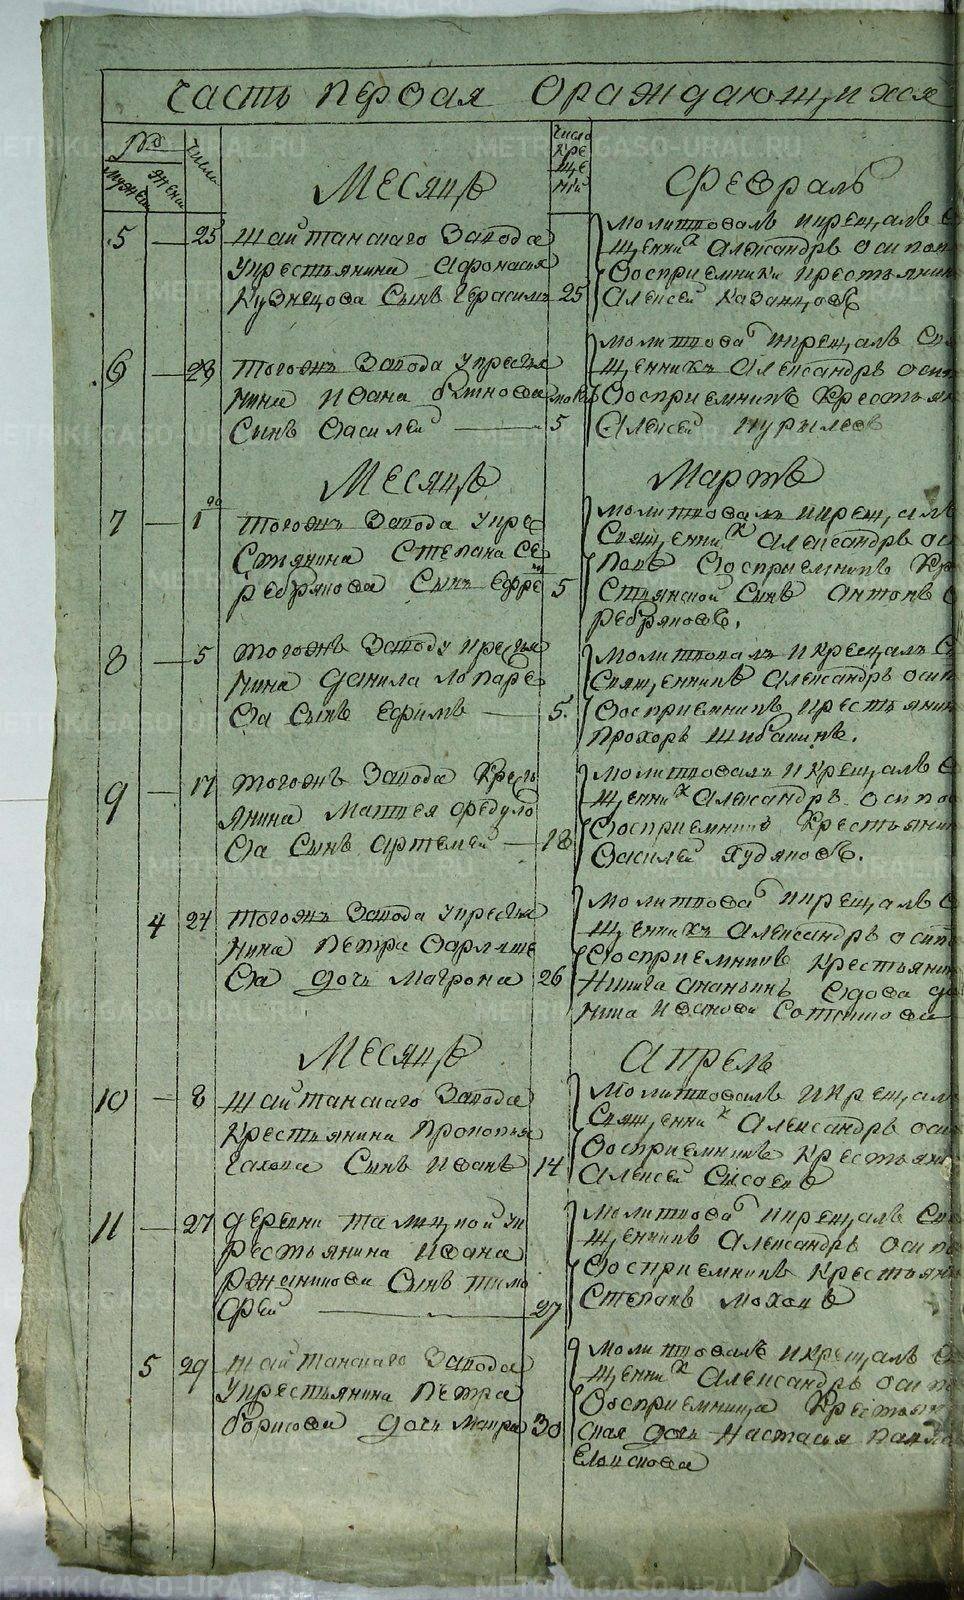 Часть первая о раждающихся
№
мужеск
женск
Числа
Месяцъ
Число
кре
ще
нїй
Февраль
5 — 25 Шайтанскаго завода
у крестьянина Афонасья
Кузнецова сынъ Герасимъ 25
Молитвовалъ и крещалъ
щенник Александръ Осипов
Восприемники крестьянин
Алексей Казанцовъ
6 — 28 тогожъ завода у крестья
нина Ивана
сынъ Василей — 5
Молитвова и крещалъ Свя
щенникъ Александръ Осип
Восприемникъ крестьян
Алексей
Месяцъ Мартъ
7 — 1го тогожъ завода у кре
стьянина Степана Се
ребрякова сынъ Ефре 5
Молитвовалъ и крещалъ
Священник Александръ Оси
повъ Восприемникъ кр
стьянской сынъ Антонъ С
ребряковъ.
8 — 5 тогожъ заводу крестья
нина Данила Лопаре
ва сынъ Ефимъ — 5.
Молитвовалъ и крещалъ С
Священникъ Александръ Осип
Восприемникъ крестьянин
Прохоръ Шибакинъ.
9 — 17 тогожъ завода кресть
янина Матвея Федуло
ва сынъ Артемей — 18
Молитвовалъ и крещалъ С
щенник Александръ Осипов
Восприемникъ крестьянин
Василей Худяковъ.
4 24 тогожъ завода у крестья
нина Петра
ва дочь Матрона 26
Молитвова и крещалъ С
щенникъ Александръ Осипо
Восприемникъ крестьянин
Никита Ананьинъ вдова
Ивановa
Месяцъ Апрель
10 — 8 Шайтанскаго завода
крестьянина Прокопья
сынъ Иванъ 14
Молитвовалъ и крещал
Священник Александръ Оси
Восприемникъ крестьяни
Алексей Сысоевъ
11 — 27 деревни Талицкой у к
рестьянина Ивана
сынъ Тимо
фей — 27
Молитвова и крещалъ Свя
щенникъ Александръ Осипо
Восприемникъ крестьян
Степанъ
5 29 Шайтанскаго завода
у крестьянина Петра
Борисова дочь Мавра 30
Молитвовалъ и крещалъ С
щенник Александръ Осипо
Восприемница крестьян
ская дочь Настасья Павло
METRIKI.GASO-URAL.RU